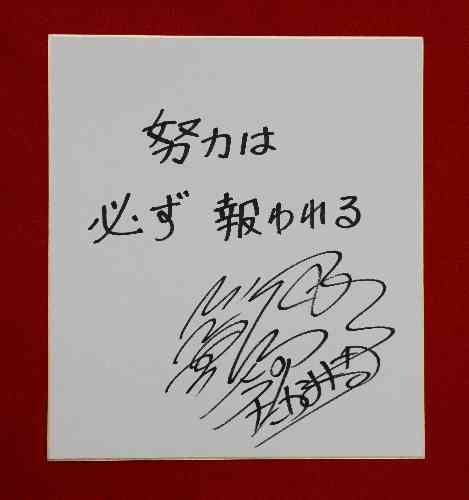 努力は
必ず 報われる